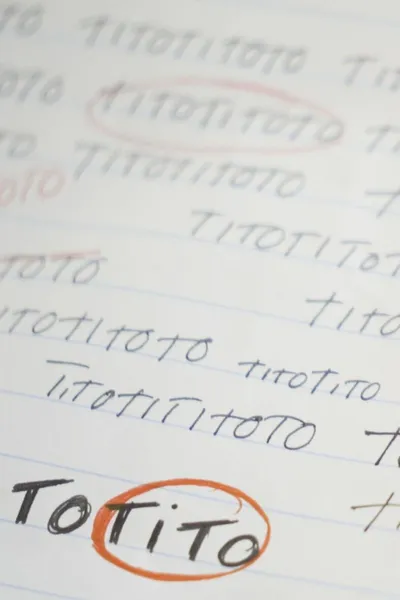 TO TITOTITOTO TIT
OTO TITOTITOTO TI
TO TITOTITOTO T
OTO
TITOTITOT
TOTO TITO
ITOTITOTO TITOTITO
TITOTITITOTO T
TOTiTO